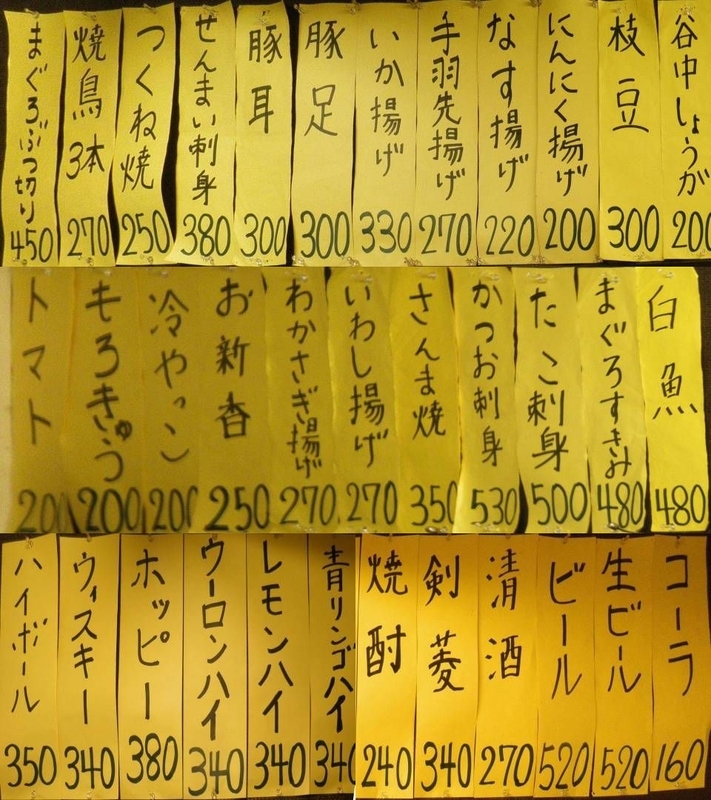 谷中しょうが 200
枝豆 300
にんにく揚げ 200
なす揚げ 220
手羽先揚げ 270
いか揚げ 330
豚足 300
豚耳 300
せんまい刺身 380
つくね焼 250
焼鳥3本 270
まぐろぶつ切り 450
白魚 480
まぐろすきみ 480
たこ刺身 500
かつお刺身 530
さんま焼 350
いわし揚げ 270
わかさぎ揚げ 270
お新香 250
冷やっこ 200
もろきゅう 200
トマト 200
コーラ 160
生ビール 520
ビール 520
清酒 270
剣菱 340
焼酎 240
青リンゴハイ 340
レモンハイ 340
ウーロンハイ 340
ホッピー 380
ウィスキー 340
ハイボール 350